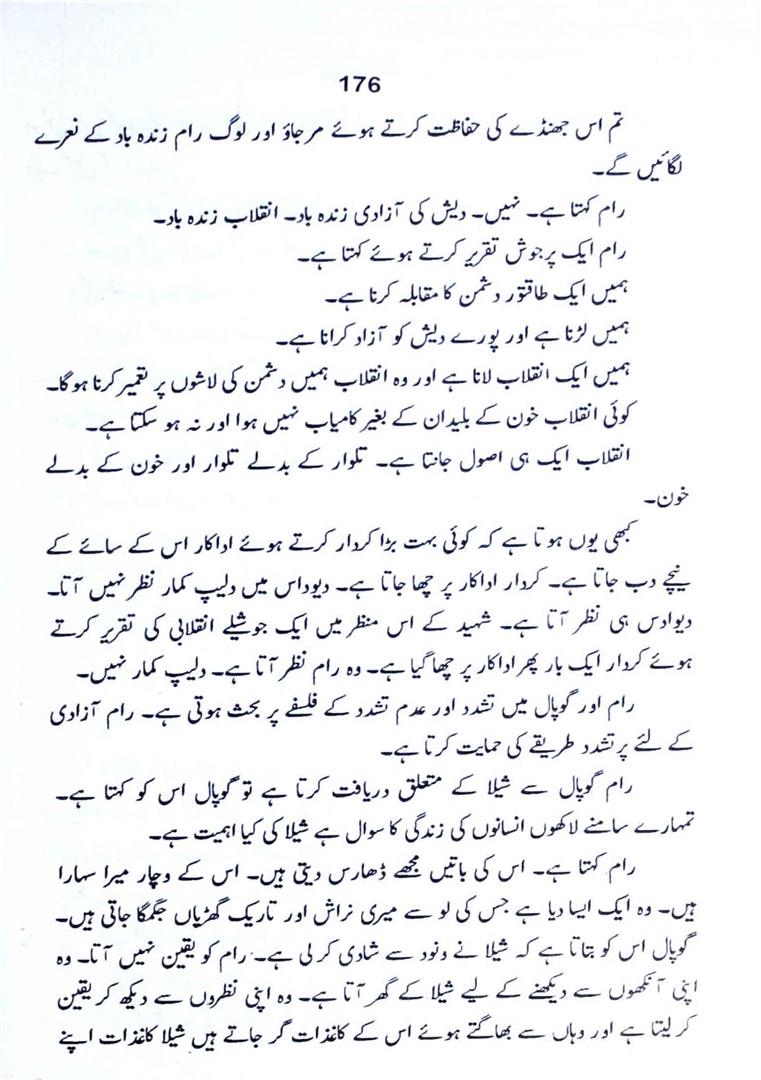 176
تم اس جھنڈے کی حفاظت کرتے ہوئے مرجاؤ اور لوگ رام زندہ باد کے نعرے
لگائیں گے۔
رام کہتا ہے۔ نہیں۔ دیش کی آزادی زندہ باد۔ انقلاب زندہ باد۔
رام ایک پرجوش تقریر کرتے ہوئے کہتا ہے۔
ہمیں ایک طاقتور دشمن کا مقابلہ کرنا ہے۔
ہمیں لڑنا ہے اور پورے دیش کو آزاد کرانا ہے۔
ہمیں ایک انقلاب لانا ہے اور وہ انقلاب ہمیں دشمن کی لاشوں پر تعمیر کرنا ہوگا۔
کوئی انقلاب خون کے بلیدان کے بغیر کامیاب نہیں ہوا اور نہ ہو سکتا ہے۔
انقلاب ایک ہی اصول جانتا ہے۔ تلوار کے بدلے تلوار اور خون کے بدلے
خون۔
کبھی یوں ہوتا ہے کہ کوئی بہت بڑا کردار کرتے ہوئے اداکار اس کے سائے کے
نیچے دب جاتا ہے۔ کردار اداکار پر چھا جاتا ہے۔ دیوداس میں دلیپ کمار نظر نہیں آتا۔
دیوادس ہی نظر آتا ہے۔ شہید کے اس منظر میں ایک جوشیلے انقلابی کی تقریر کرتے
ہوئے کردار ایک بار پھر اداکار پر چھا گیا ہے۔ وہ رام نظر آتا ہے۔ دلیپ کمار نہیں۔
رام اور گوپال میں تشدد اور عدم تشدد کے فلسفے پر بحث ہوتی ہے۔ رام آزادی
کے لئے پرتشدد طریقے کی حمایت کرتا ہے۔
رام گوپال سے شیلا کے متعلق دریافت کرتا ہے تو گوپال اس کو کہتا ہے۔
تمہارے سامنے لاکھوں انسانوں کی زندگی کا سوال ہے شیلا کی کیا اہمیت ہے۔
رام کہتا ہے۔ اس کی باتیں مجھے ڈھارس دیتی ہیں۔ اس کے وچار میرا سہارا
ہیں۔ وہ ایک ایسا دیا ہے جس کی لو سے میری نراش اور تاریک گھڑیاں جگمگا جاتی ہیں۔
گوپال اس کو بتاتا ہے کہ شیلا نے ونود سے شادی کر لی ہے۔ رام کو یقین نہیں آتا۔ وہ
اپنی آنکھوں سے دیکھنے کے لیے شیلا کے گھر آتا ہے۔ وہ اپنی نظروں سے دیکھ کر یقین
کر لیتا ہے اور وہاں سے بھاگتے ہوئے اس کے کاغذات گر جاتے ہیں شیلا کاغذات اپنے